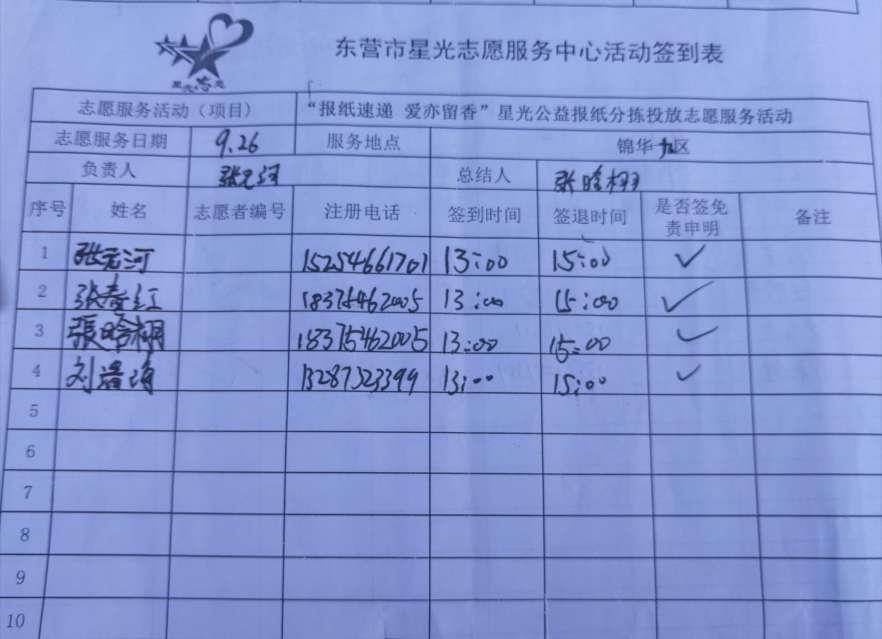 东营市星光志愿服务中心活动签到表
志愿服务活动（项目） “报纸速递 爱亦留香”星光公益报纸分拣投放志愿服务活动
志愿服务日期 9.26 服务地点 锦华九区
负责人 张元河 总结人 张晗栩
序号 姓名 志愿者编号 注册电话 签到时间 签退时间 是否签免责申明 备注
1 张元河 15254661701 13:00 15:00 ✓
2 张春红 18375462005 13:00 15:00 ✓
3 張晗栩 18375462005 13:00 15:00 ✓
4 刘 13287323399 13:00 15:00 ✓
5
6
7
8
9
10